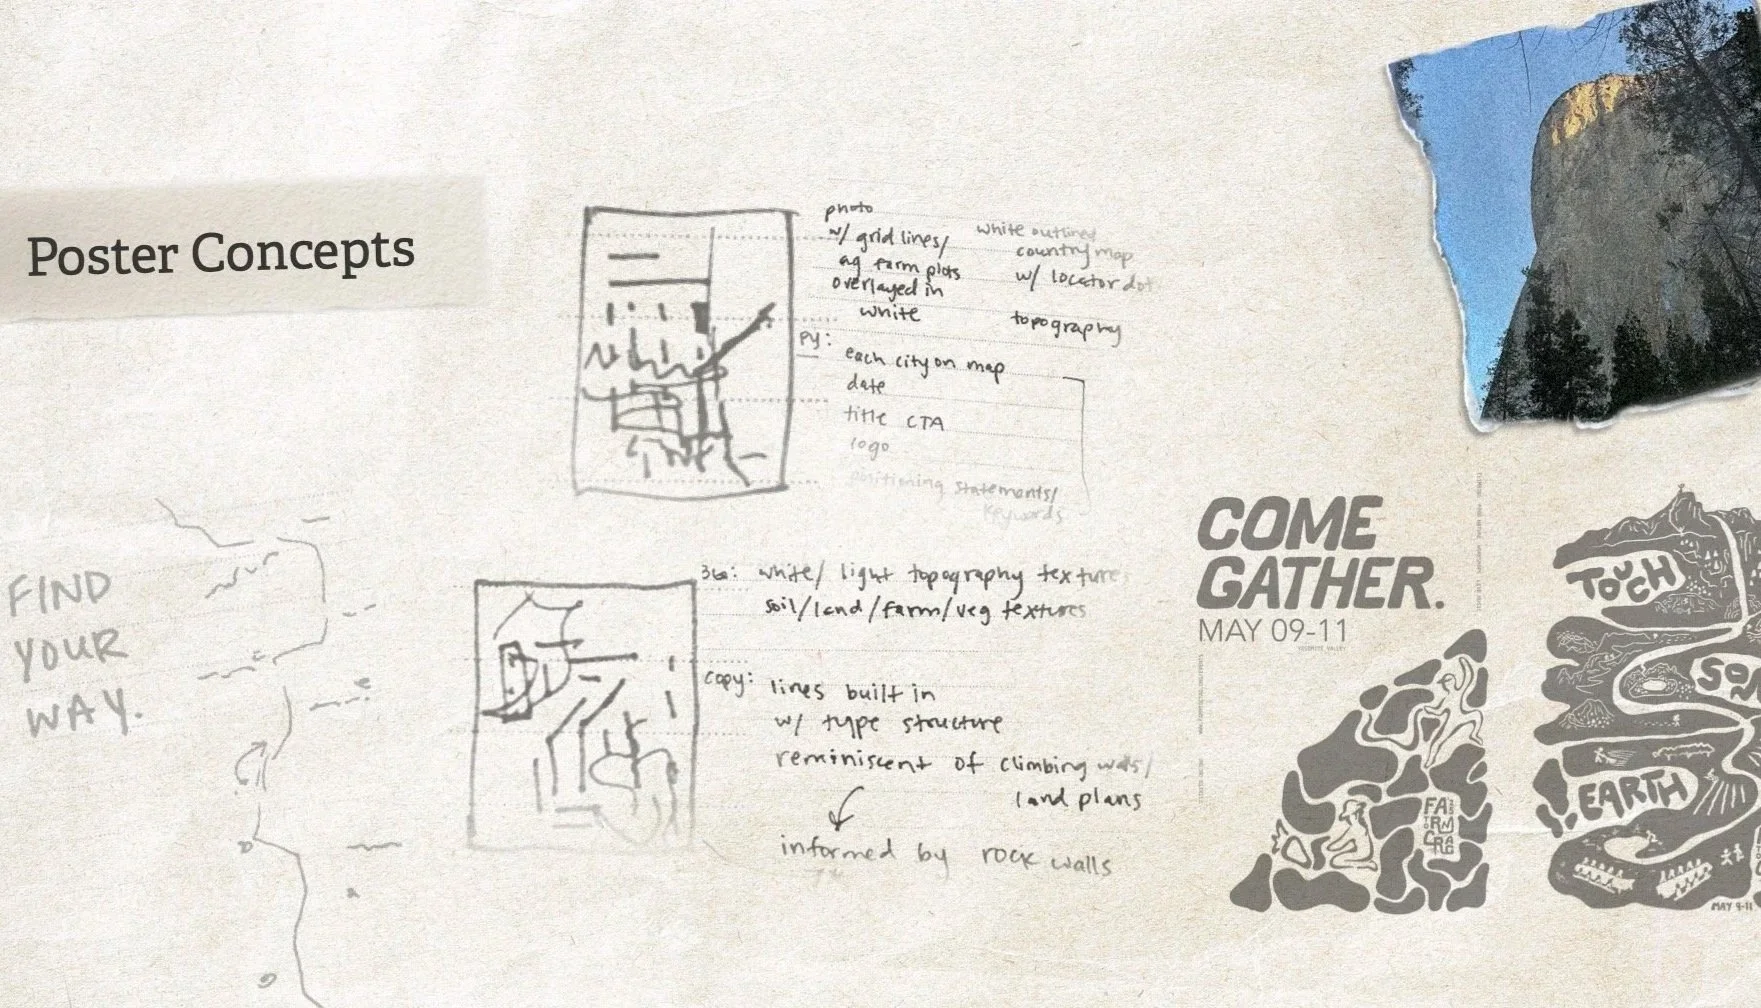 Poster Concepts
photo
w/ grid lines/
ag farm plots
overlayed in
white
white outlined
country map
w/ locator dot
topography
PY:
each city on map
date
title CTA
logo
positioning statements/
keywords
FIND
YOUR
WAY.
360: white/ light topography texture
soil/land/farm/veg textures
copy: lines built in
w/ type structure
reminiscent of climbing walls/
land plans
informed by rock walls
COME
GATHER.
MAY 09-11
YOSEMITE VALLEY
FA
RM
CRAG
TOUCH
SOM
EARTH
MAY 9-11